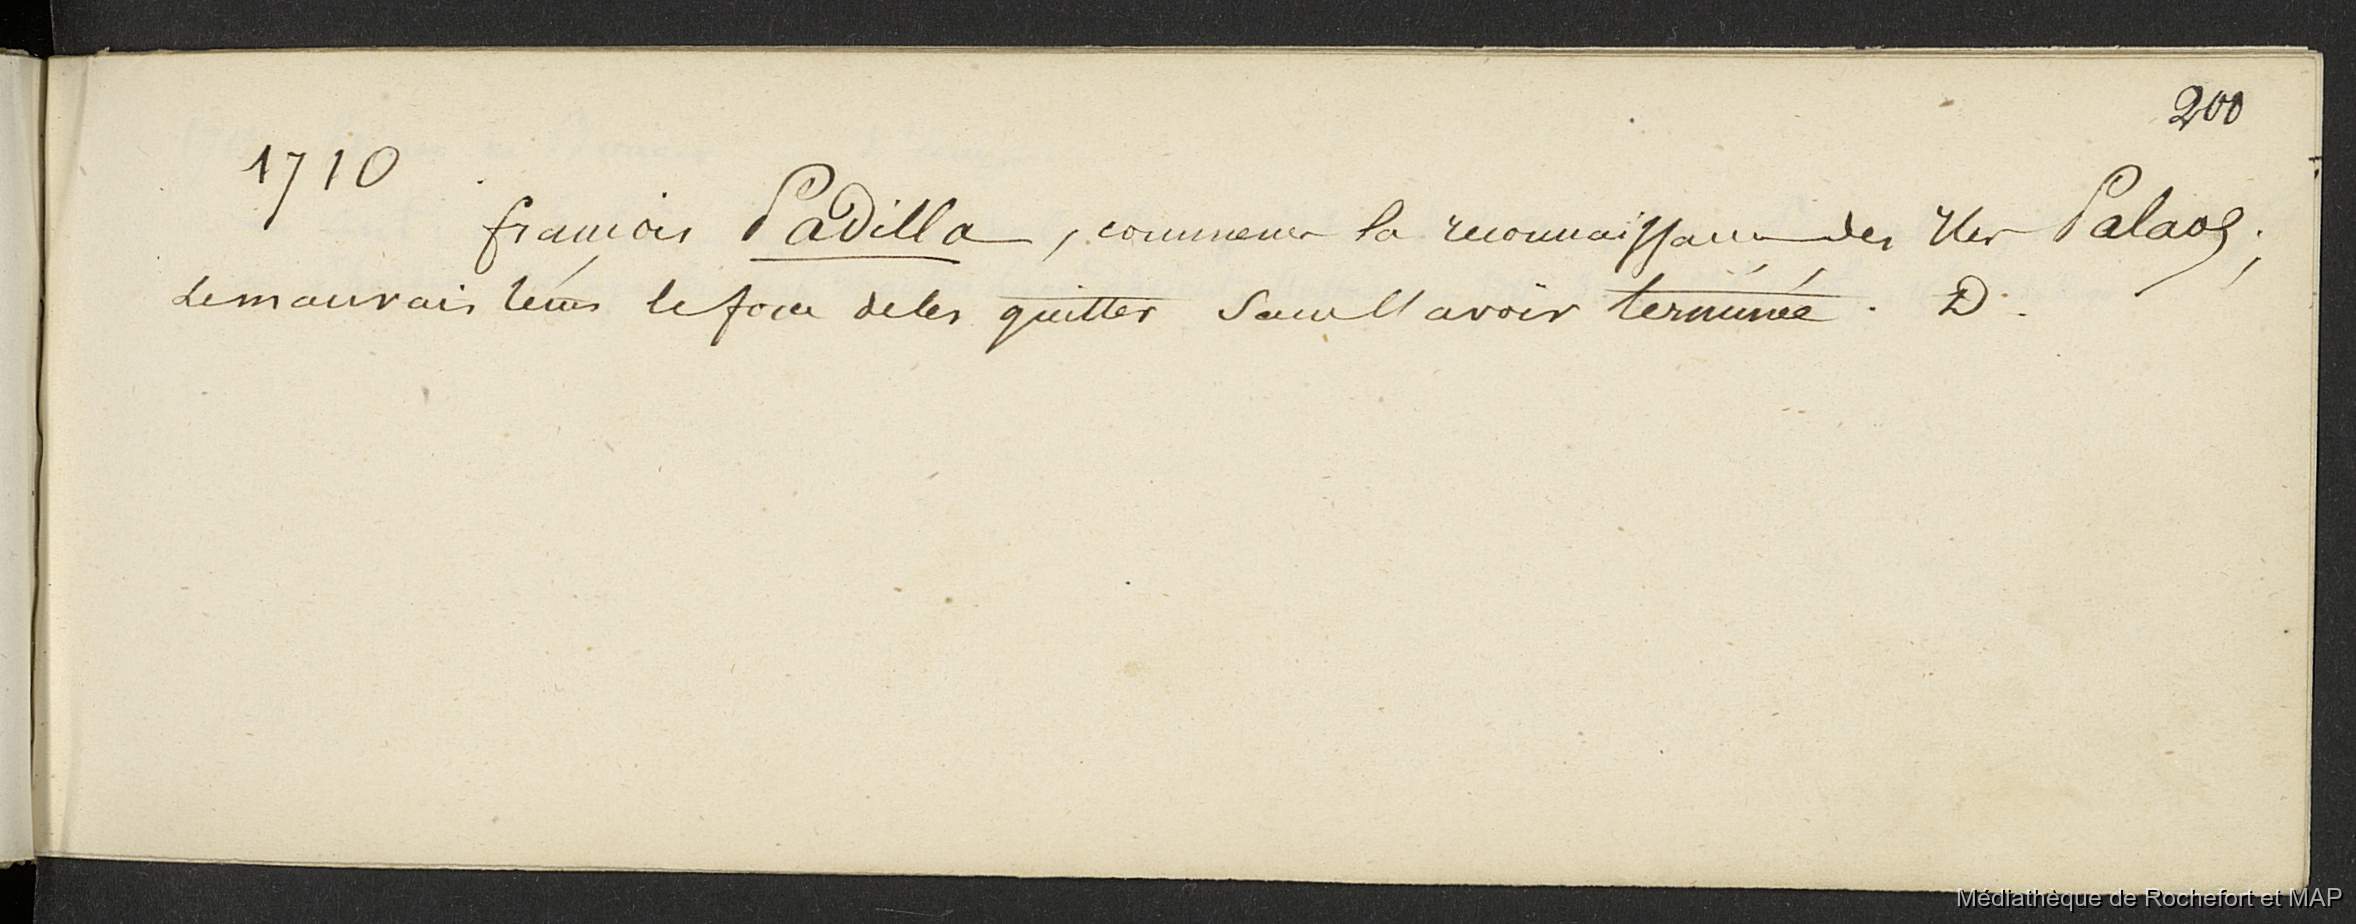 200
1710
françois Padilla, commence la reconnaissance des Iles Palaos;
le mauvais tems le force de les quitter sans l'avoir terminée. D.
Médiathèque de Rochefort et MAP